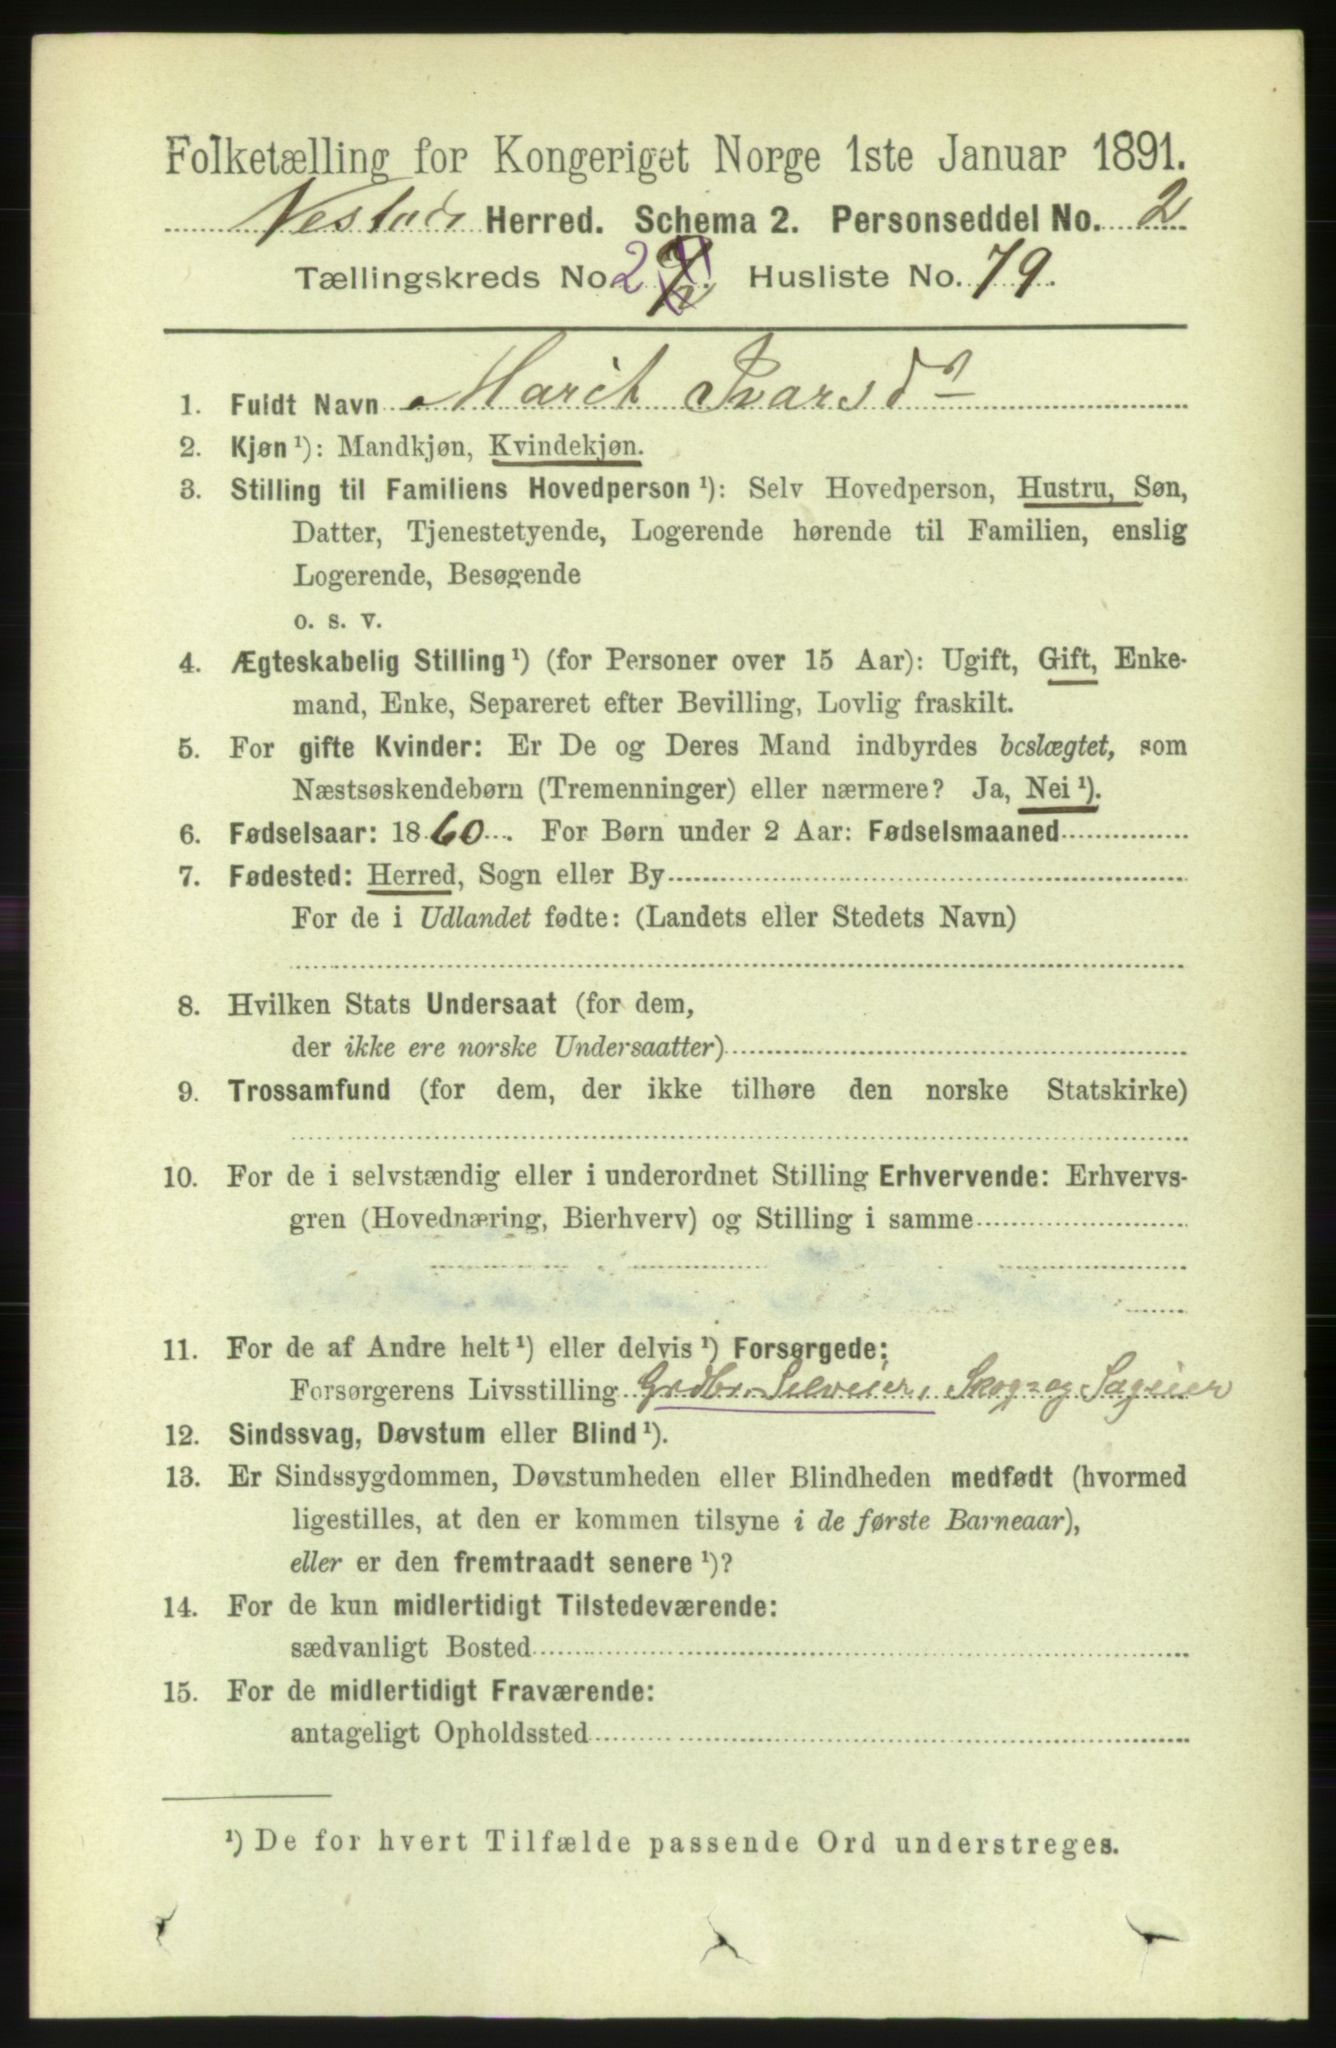 Folketælling for Kongeriget Norge 1ste Januar 1891.
Nestads Herred. Schema 2. Personseddel No. 2
Tællingskreds No. 2 Husliste No. 79.
1. Fuldt Navn Marit Ivarsd
2. Kjøn ¹): Mandkjøn, Kvindekjøn.
3. Stilling til Familiens Hovedperson ¹): Selv Hovedperson, Hustru, Søn,
Datter, Tjenestetyende, Logerende hørende til Familien, enslig
Logerende, Besøgende
o. s. v.
4. Ægteskabelig Stilling ¹) (for Personer over 15 Aar): Ugift, Gift, Enke-
mand, Enke, Separeret efter Bevilling, Lovlig fraskilt.
5. For gifte Kvinder: Er De og Deres Mand indbyrdes beslægtet, som
Næstsøskendebørn (Tremenninger) eller nærmere? Ja, Nei ¹).
6. Fødselsaar: 1860. For Børn under 2 Aar: Fødselsmaaned
7. Fødested: Herred, Sogn eller By
For de i Udlandet fødte: (Landets eller Stedets Navn)
8. Hvilken Stats Undersaat (for dem,
der ikke ere norske Undersaatter)
9. Trossamfund (for dem, der ikke tilhøre den norske Statskirke)
10. For de i selvstændig eller i underordnet Stilling Erhvervende: Erhvervs-
gren (Hovednæring, Bierhverv) og Stilling i samme
11. For de af Andre helt ¹) eller delvis ¹) Forsørgede:
Forsørgerens Livsstilling Grdbr. Selveier, Skog og Sageier
12. Sindssvag, Døvstum eller Blind ¹).
13. Er Sindssygdommen, Døvstumheden eller Blindheden medfødt (hvormed
ligestilles, at den er kommen tilsyne i de første Barneaar),
eller er den fremtraadt senere ¹)?
14. For de kun midlertidigt Tilstedeværende:
sædvanligt Bosted
15. For de midlertidigt Fraværende:
antageligt Opholdssted
¹) De for hvert Tilfælde passende Ord understreges.